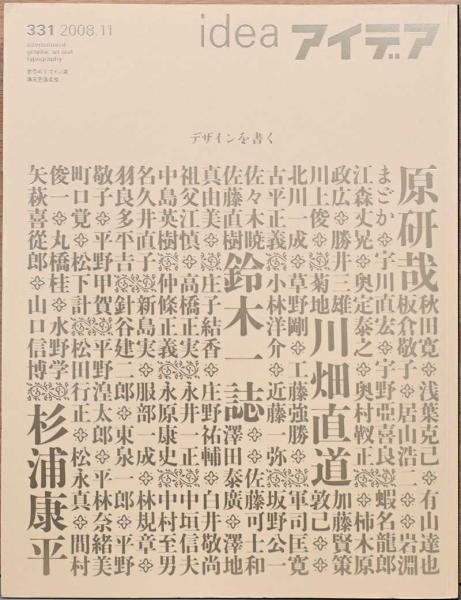 331 2008.11
international
graphic art and
typography
idea アイデア
デザインを書く
原研哉
秋田寛❖浅葉克己❖有山達也
板倉敬子❖居山浩二❖岩淵
まどか❖宇川直宏❖宇野亜喜良❖蝦名龍郎
江森丈晃❖奥定泰之❖奥村靫正❖柿木原
政広❖勝井三雄
川畑直道
加藤賢策
川上俊❖菊地
敦己
北川一成❖草野剛❖工藤強勝❖軍司匡寛
古平正義❖小林洋介❖近藤一弥❖坂野公一
佐々木暁
鈴木一誌
佐藤可士和
佐藤直樹
澤田泰廣❖澤地
真由美❖庄子結香❖庄野祐輔❖白井敬尚
祖父江慎❖高橋正実❖永井一正❖中垣信夫
中島英樹❖仲條正義❖永原康史❖中村至男
名久井直子❖新島実❖服部一成❖林規章
羽良多平吉❖針谷建二郎❖東泉一郎❖平野
敬子❖平野甲賀❖平野湟太郎❖平林奈緒美
町口覚❖松下計❖松田行正❖松永真❖間村
俊一❖丸橋桂❖水野学
矢萩喜從郎❖山口信博
杉浦康平